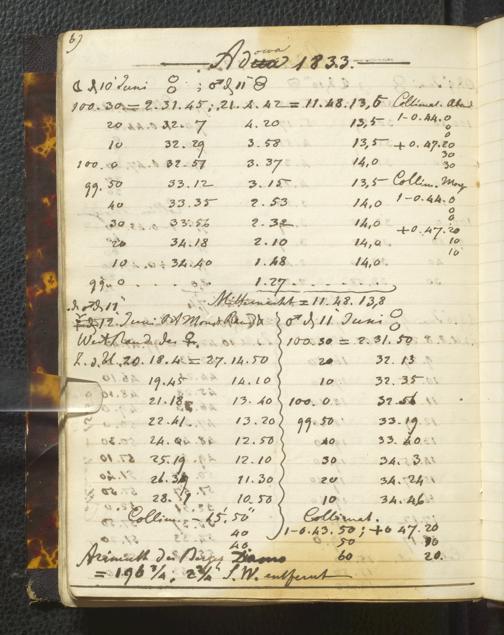 6)
Adowa 1833.
☾ d 10 Juni ; ♂ d 11 ⊖
100.30 = 2.31.45; 21.4.42 = 11.48.13,5 Collimat. Abend
20 32.7 4.20 13,5 1-0.44.0
10 32.29 3.58 13,5 + 0.47.20
100.0 32.51 3.37 14,0 30
99.50 33.12 3.15 13,5 Collim. Morg
40 33.35 2.53 14,0 1-0.44.0
30 33.56 2.32 14,0 + 0.47.20
20 34.18 2.10 14,0 10
10 34.40 1.48 14,0 10
99.0 1.27
Mitternacht = 11.48.13,8
12. Juni ♂ d 11 Juni
Westrand des 100.30 = 2.31.50
Z. d. U. 20.18.4 = 27.14.50 20 32.13
19.45 14.10 10 32.35
21.18 13.40 100.0 32.56
22.41 13.20 99.50 33.19
24.0 12.50 40 33.40
25.19 12.10 30 34.3
26.39 11.30 20 34.24
28.9 10.50 10 34.46
Collim. 45'.50" Collimat.
40 1-0.43.50; +0.47.20
40 50 10
Azimuth des Berges 60 20.
= 196 3/4, 2 3/4 S.W. entfernt